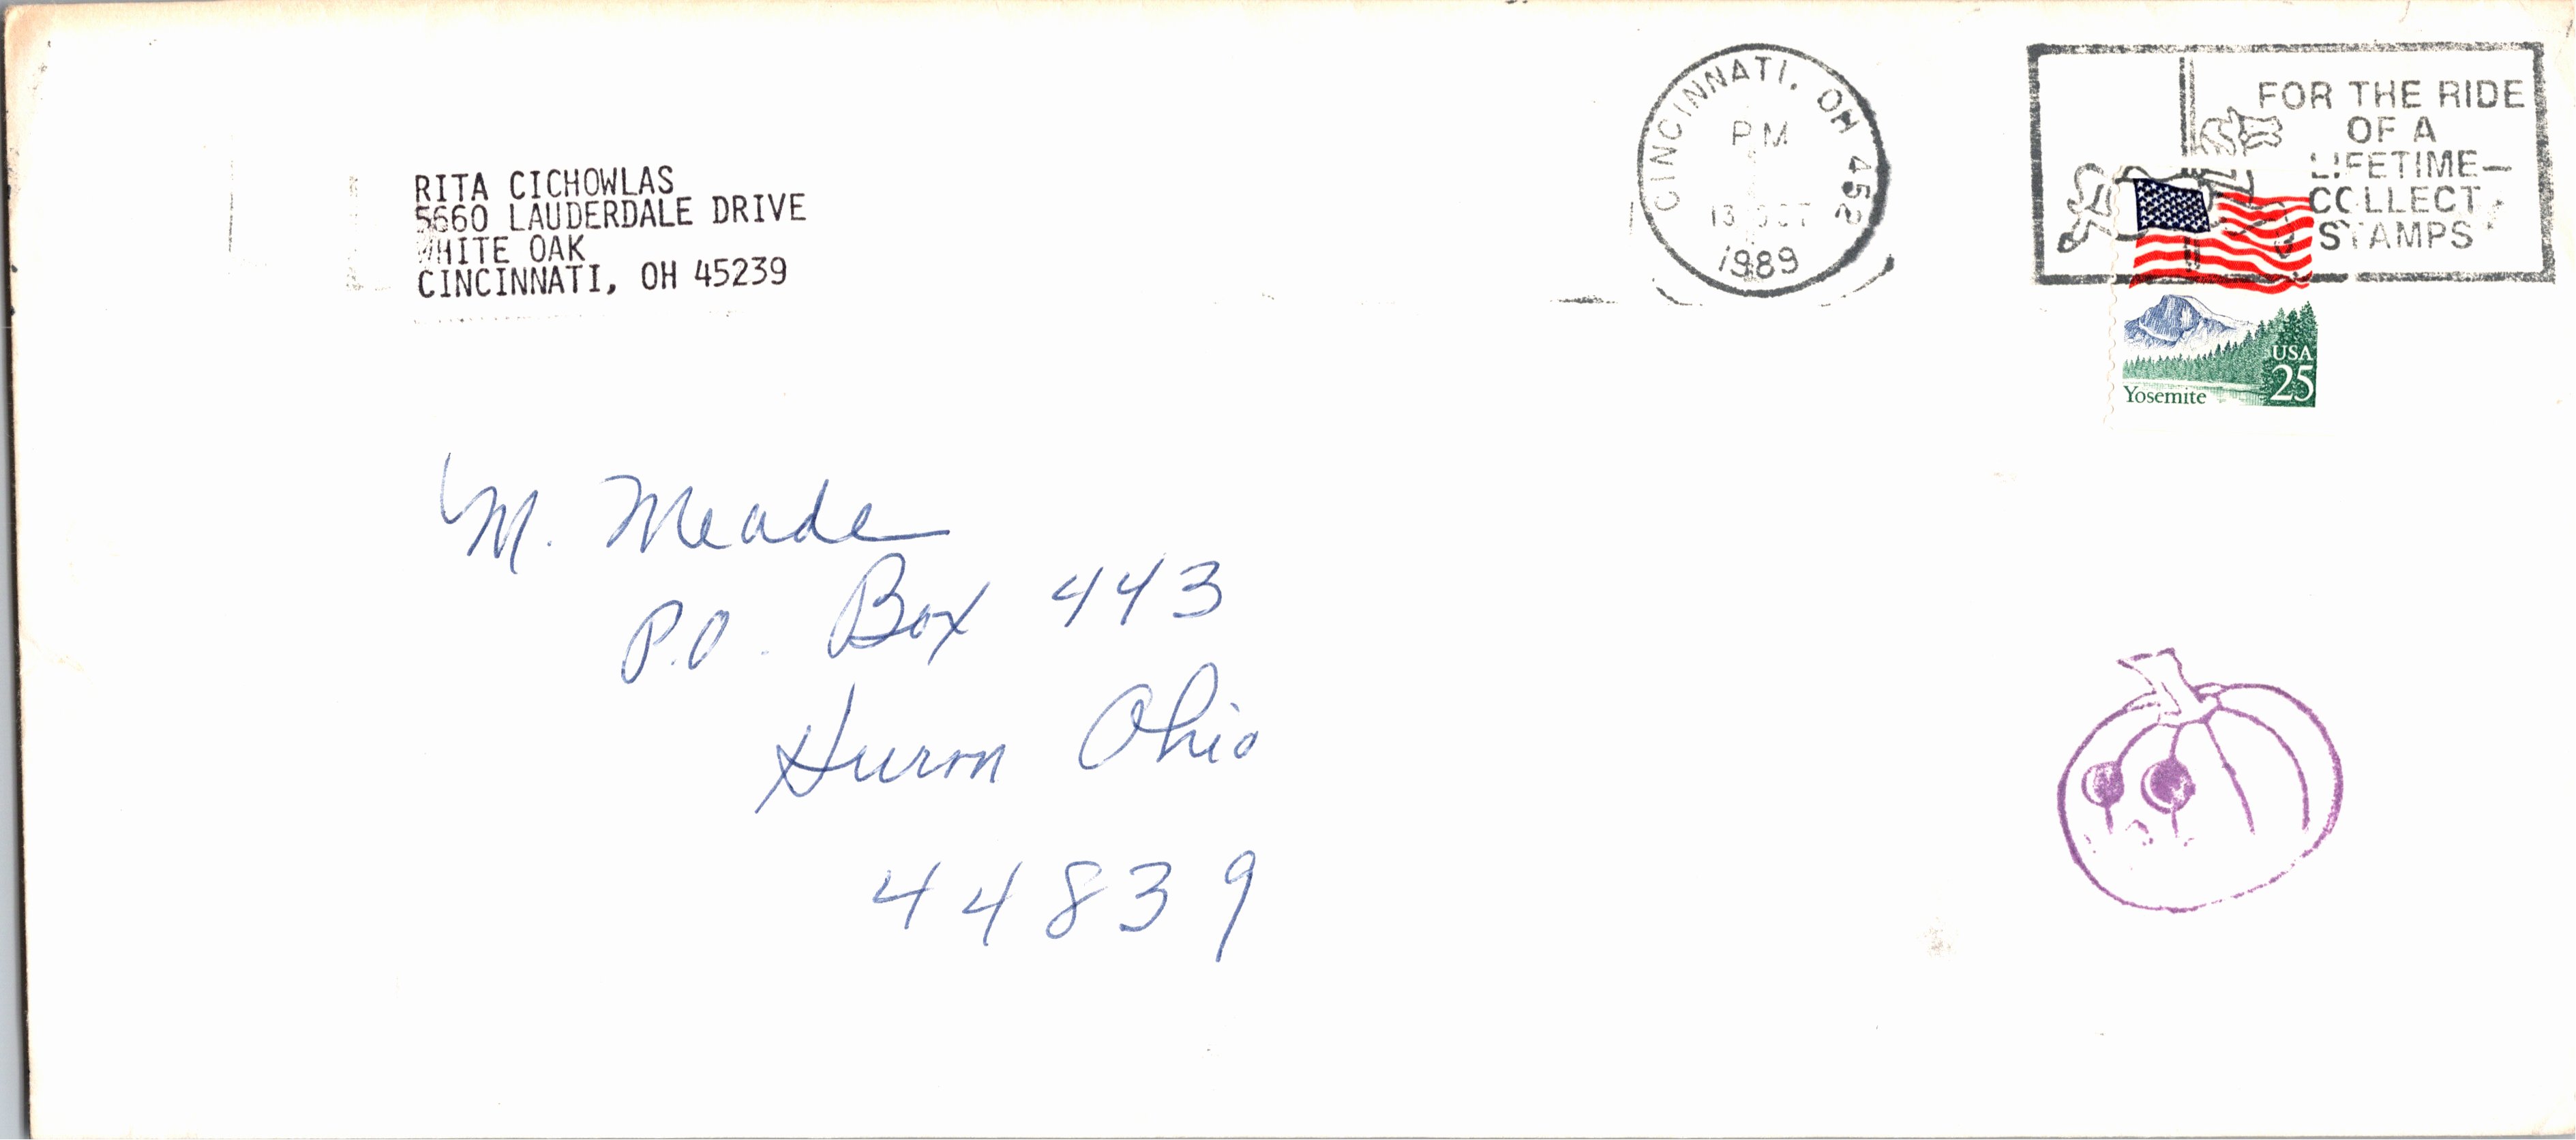 RITA CICHOWLAS
5660 LAUDERDALE DRIVE
WHITE OAK
CINCINNATI, OH 45239
CINCINNATI, OH 452
PM
13 OCT
1989
FOR THE RIDE
OF A
LIFETIME—
COLLECT
STAMPS
USA
25
Yosemite
M. Meade
P.O. Box 443
Huron Ohio
44839